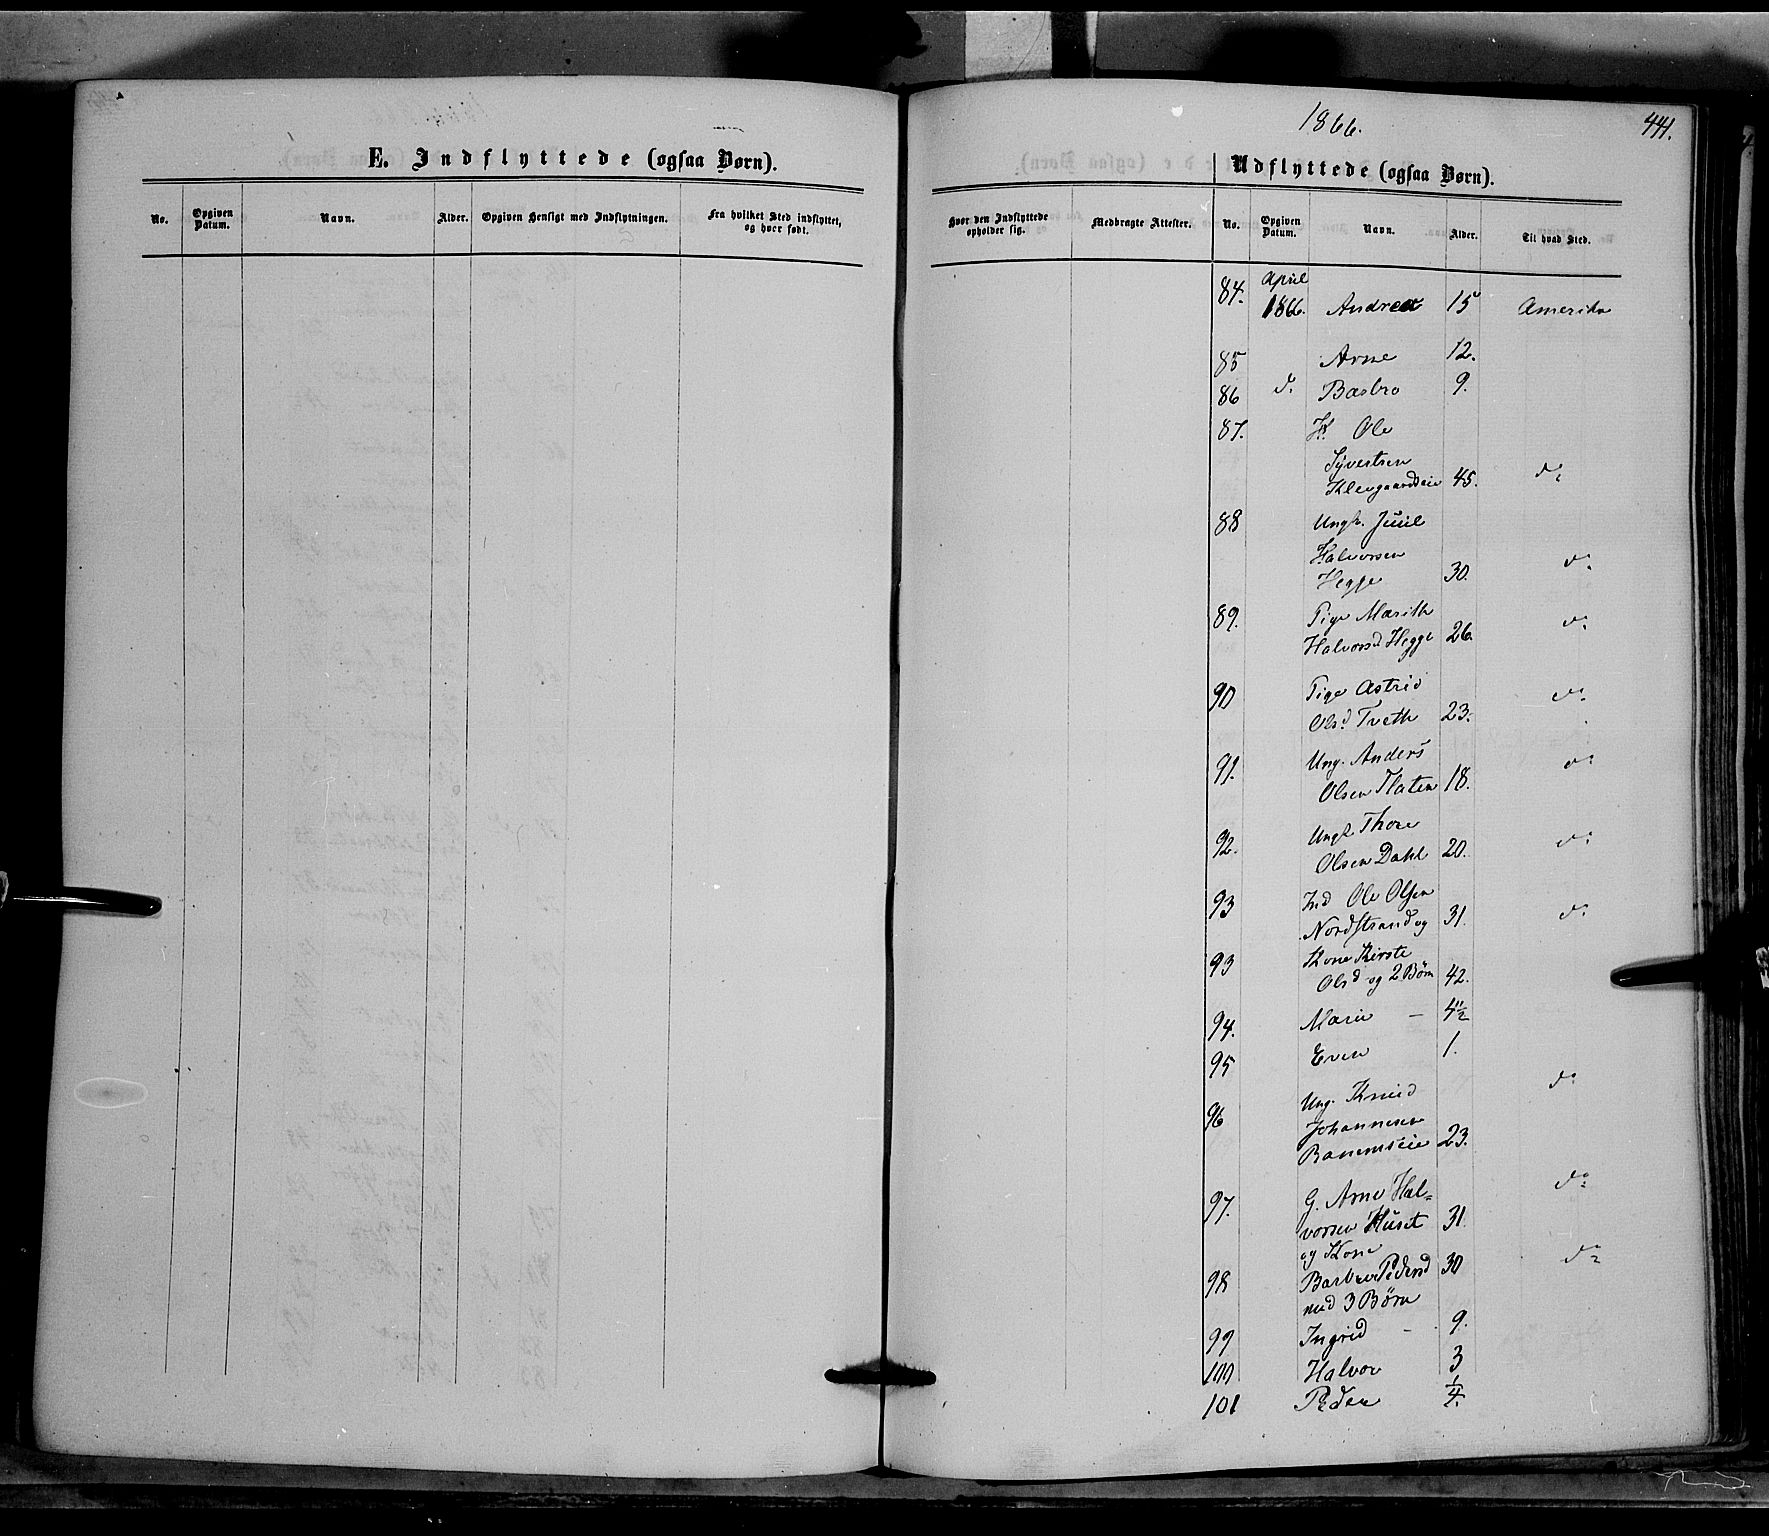 1866.
441.
E. Indflyttede (ogsaa Børn).
Udflyttede (ogsaa Børn).
No.
Opgiven Datum.
Navn.
Alder.
Opgiven Hensigt med Indflytningen.
Fra hvilket Sted indflyttet, og hvor født.
Hvor den Indflyttede opholder sig.
Medbragte Attester.
No.
Opgiven Datum.
Navn.
Alder.
Til hvad Sted.
84. April
1866. Andrea 15 Amerika
85 Arne 12.
86 do Barbro 9.
87. Ole
Syvertsen
45. do
88 Ungk. Juul
Halvorsen
Hegge 30. do
89. Pige Marith
Halvorsd Hegge 26. do
90 Pige Astrid
Olsd Tveth 23. do
91. Ung. Anders
Olsen Flaten 18. do
92. Ungk Thore
Olsen Dahl 20. do
93 Ind Ole Olsen
Nordstrand og 31. do
93 Kone Kirste
Olsd og 2 Børn 42.
94. Marie – 4½
95 Even 1.
96 Ung. Knud do
Johannesen
23.
97. G. Arne Hal=
vorsen Huset 31. do
og Kone
98 Barbro Pedersd 30 do
med 3 Børn
99 Ingrid – 9.
100 Halvor 3
101 Peder ¼.